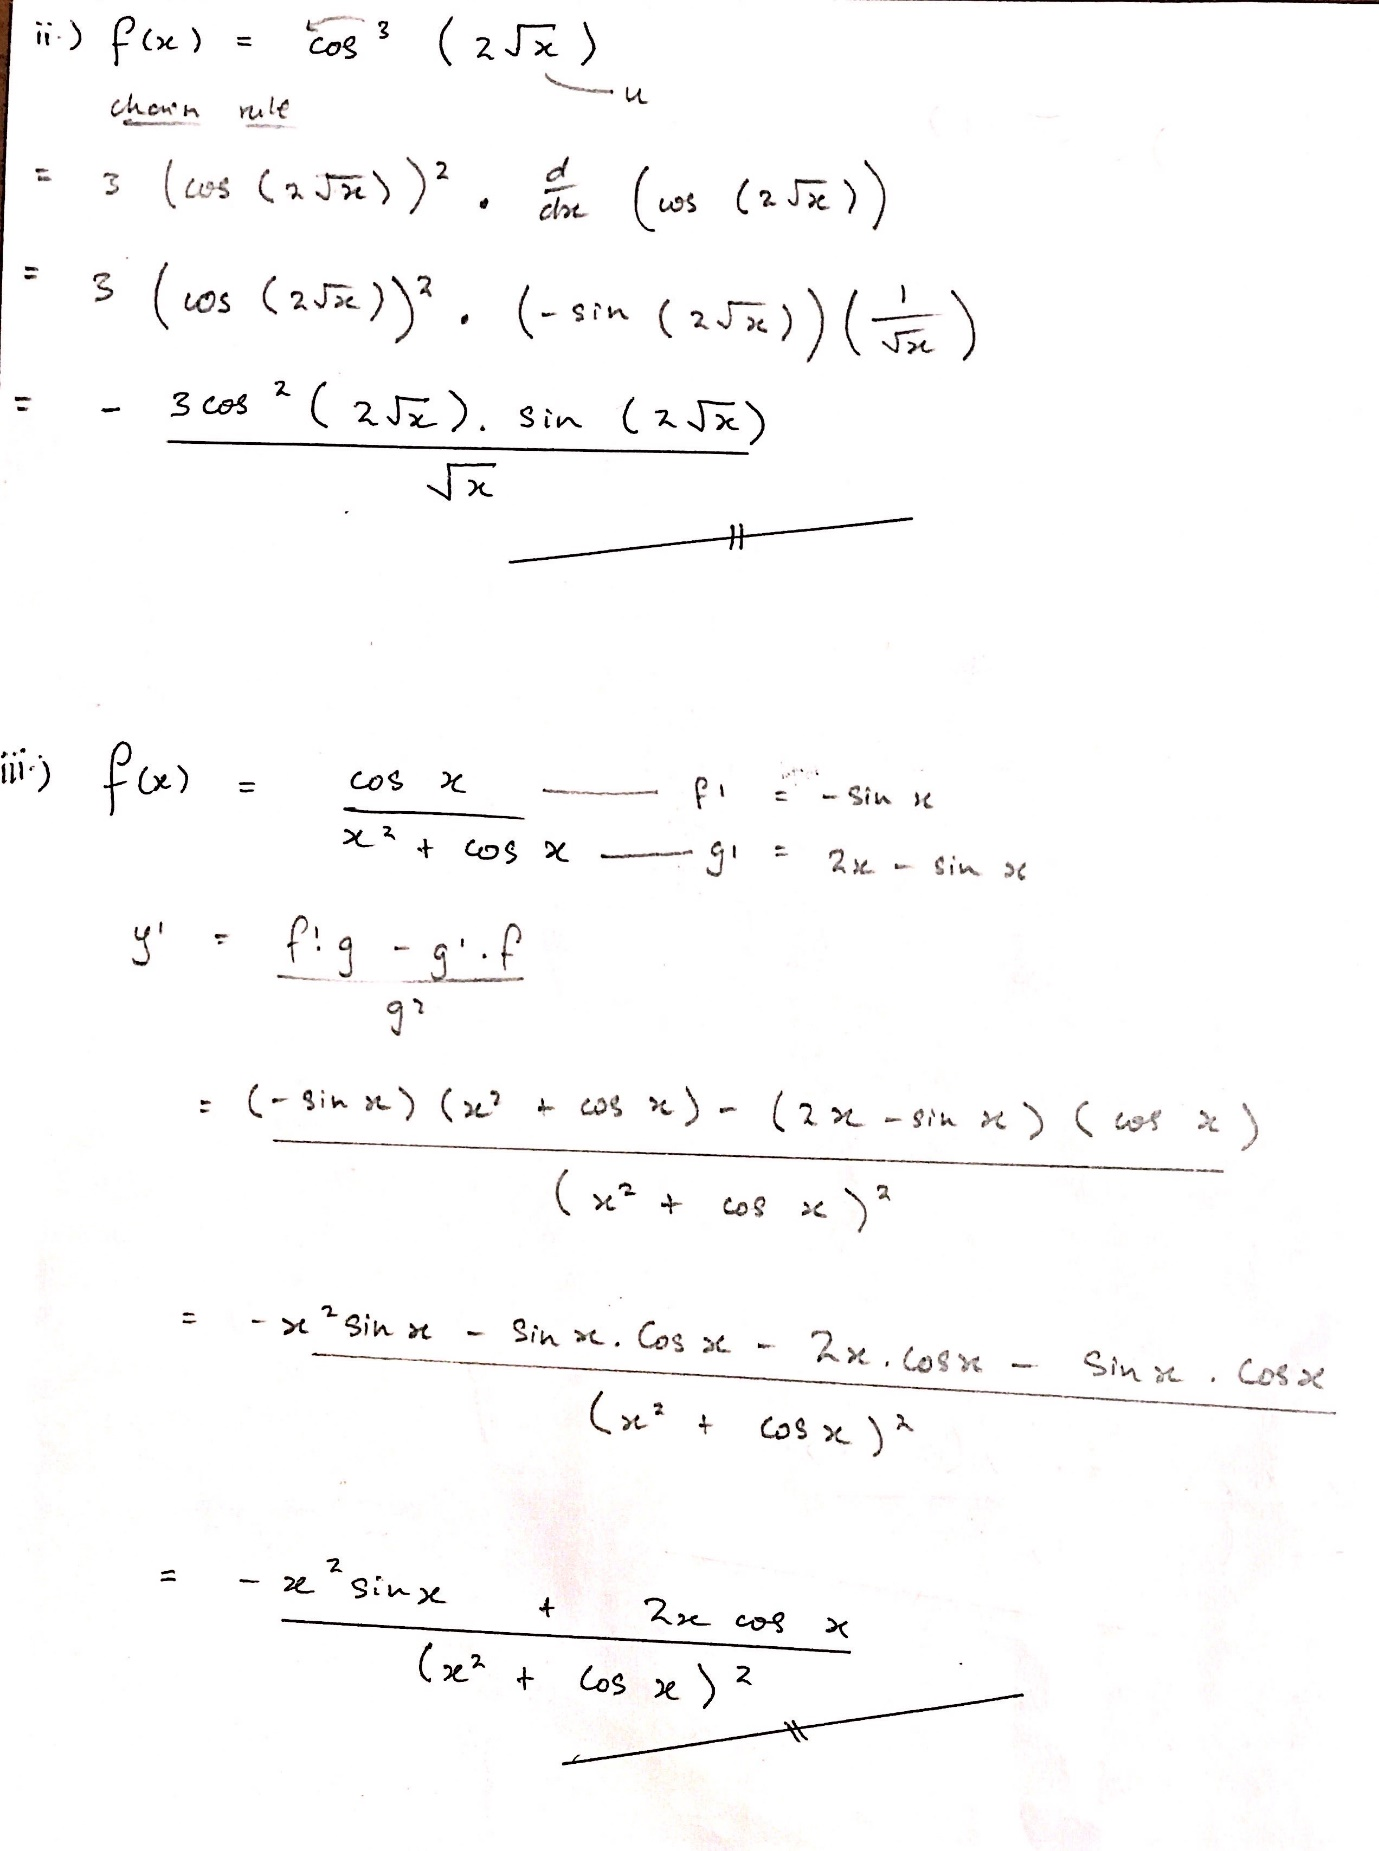 ii.) f(x) = cos³ (2√x)
u
chain rule
= 3 (cos (2√x))² . d/dx (cos (2√x))
= 3 (cos (2√x))² . (-sin (2√x)) (1/√x)
= - 3 cos² (2√x). sin (2√x)
√x
iii.) f(x) = cos x —— f' = -sin x
x² + cos x —— g' = 2x - sin x
y' = f'.g - g'.f
g²
= (-sin x) (x² + cos x) - (2x - sin x) (cos x)
(x² + cos x)²
= -x² sin x - sin x. cos x - 2x. cos x - sin x . cos x
(x² + cos x)²
= - x² sin x + 2x cos x
(x² + cos x)²